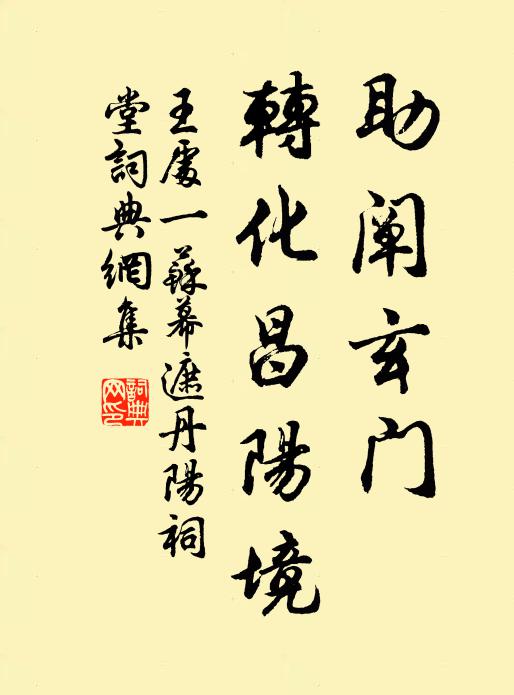 助阐玄门
轉化昌陽境
王處一蘇幕遮丹陽祠
堂詞典網集
詞典
网印